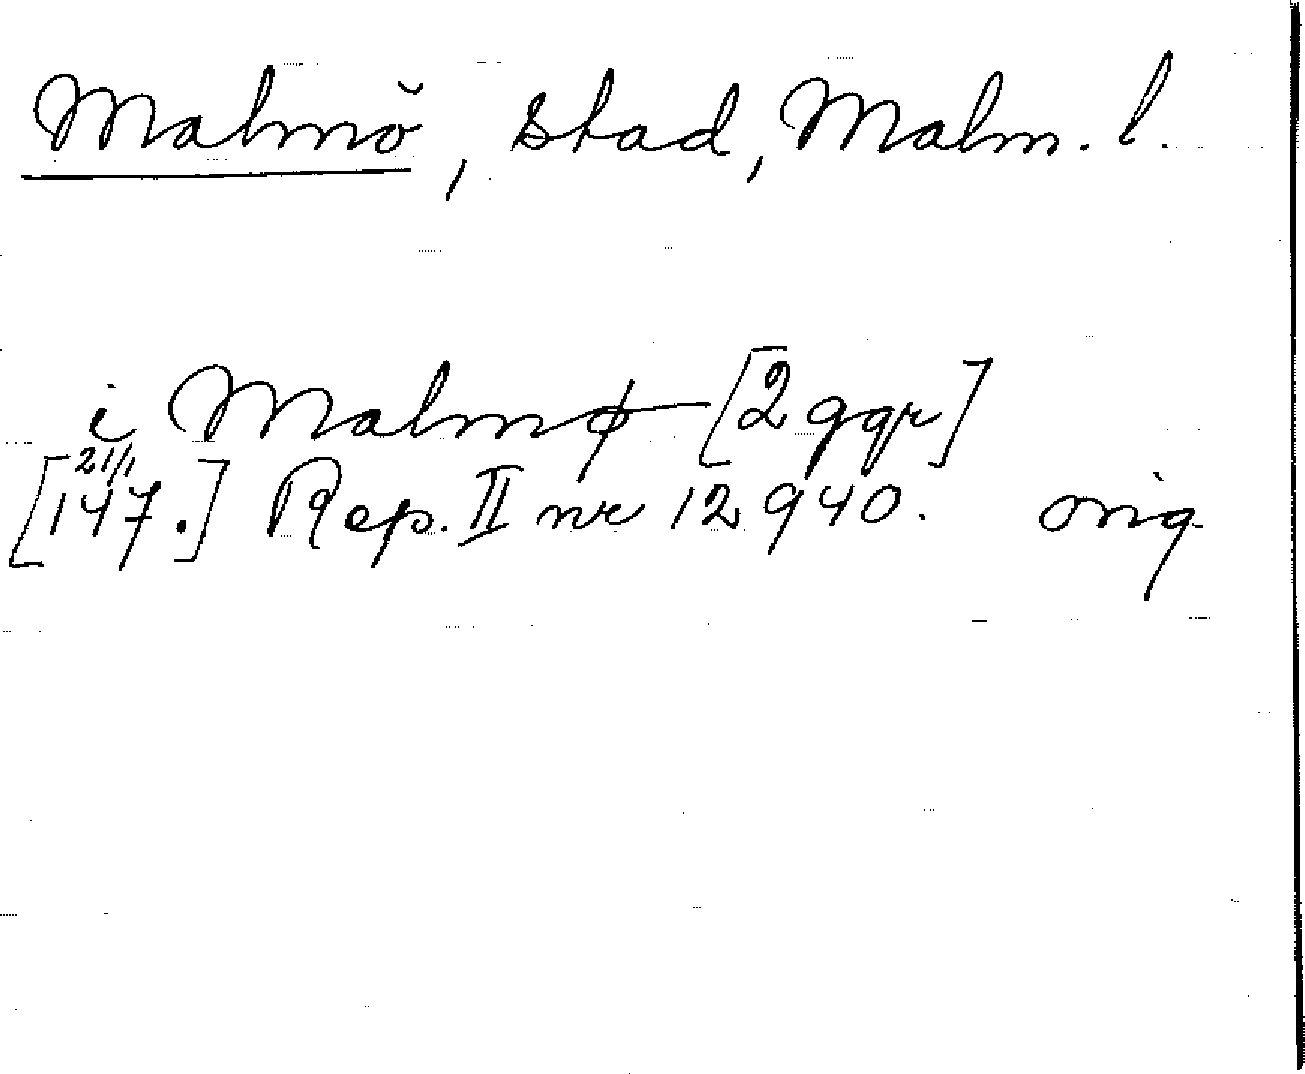 Malmö, stad, Malm. l.
i Malmø [2 ggr]
21/1
[147.] Rep. II nr 12940. orig